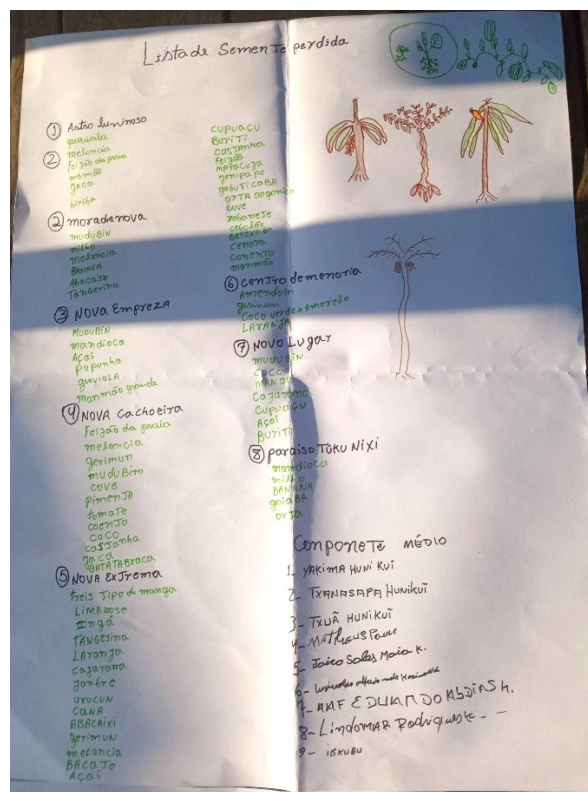 Lista de Semente perdida
① Astro luminoso
②
melancia
feijão da praia
mamão
Jaca
biriba
② moradanova
MUDUBIN
milho
melancia
BANANA
Abacate
Tangerina
③ NOVA Empreza
MUDUBIN
mandioca
Açai
Pupunha
graviola
manmão grande
④ NOVA Cachoeira
Feijão da praia
melancia
Jerimun
MUDUBim
cove
pimenJA
tomate
coenJo
coco
casJanha
Jaca
BATATABraca
⑤ NOVA ExJrema
treis Tipo di manga
LIMADOSE
Ingá
TANGErina
LAranJa
cajarana
Janbre
urucun
CANA
ABACAIXi
Jerimun
melancia
BACATO
Açai
CUPUAÇU
BuriTi
casJanha
Feijão
MARACUJA
Jenipapo
JaBUTICABA
orTA organica
cove
cebolão
Beteraba
cenora
conenTo
manmão
⑥ CenTro de memoria
Amendoin
Jerimun
Coco verde e Amorelo
LARANJA
⑦ NOVO Lugar
MUDUBIN
COCO
MANGA
Cajarana
Cupuaçu
Açai
BuriTi
⑧ paraiso Toku Nixi
mandioca
milho
BANANA
goiaBA
orTa
ComponeTe MÉDIO
1- YAKIMA HUNI KUĨ
2- TXANASAPA HUNIKUĨ
3- TXUÃ HUNIKUĨ
4- MATHEUS
5- Jairo Sales Maia K.
6-
7- AAF EDUARDO Abdias H.
8- LindoMAR Rodrigues K. - -
9- ISKUBU